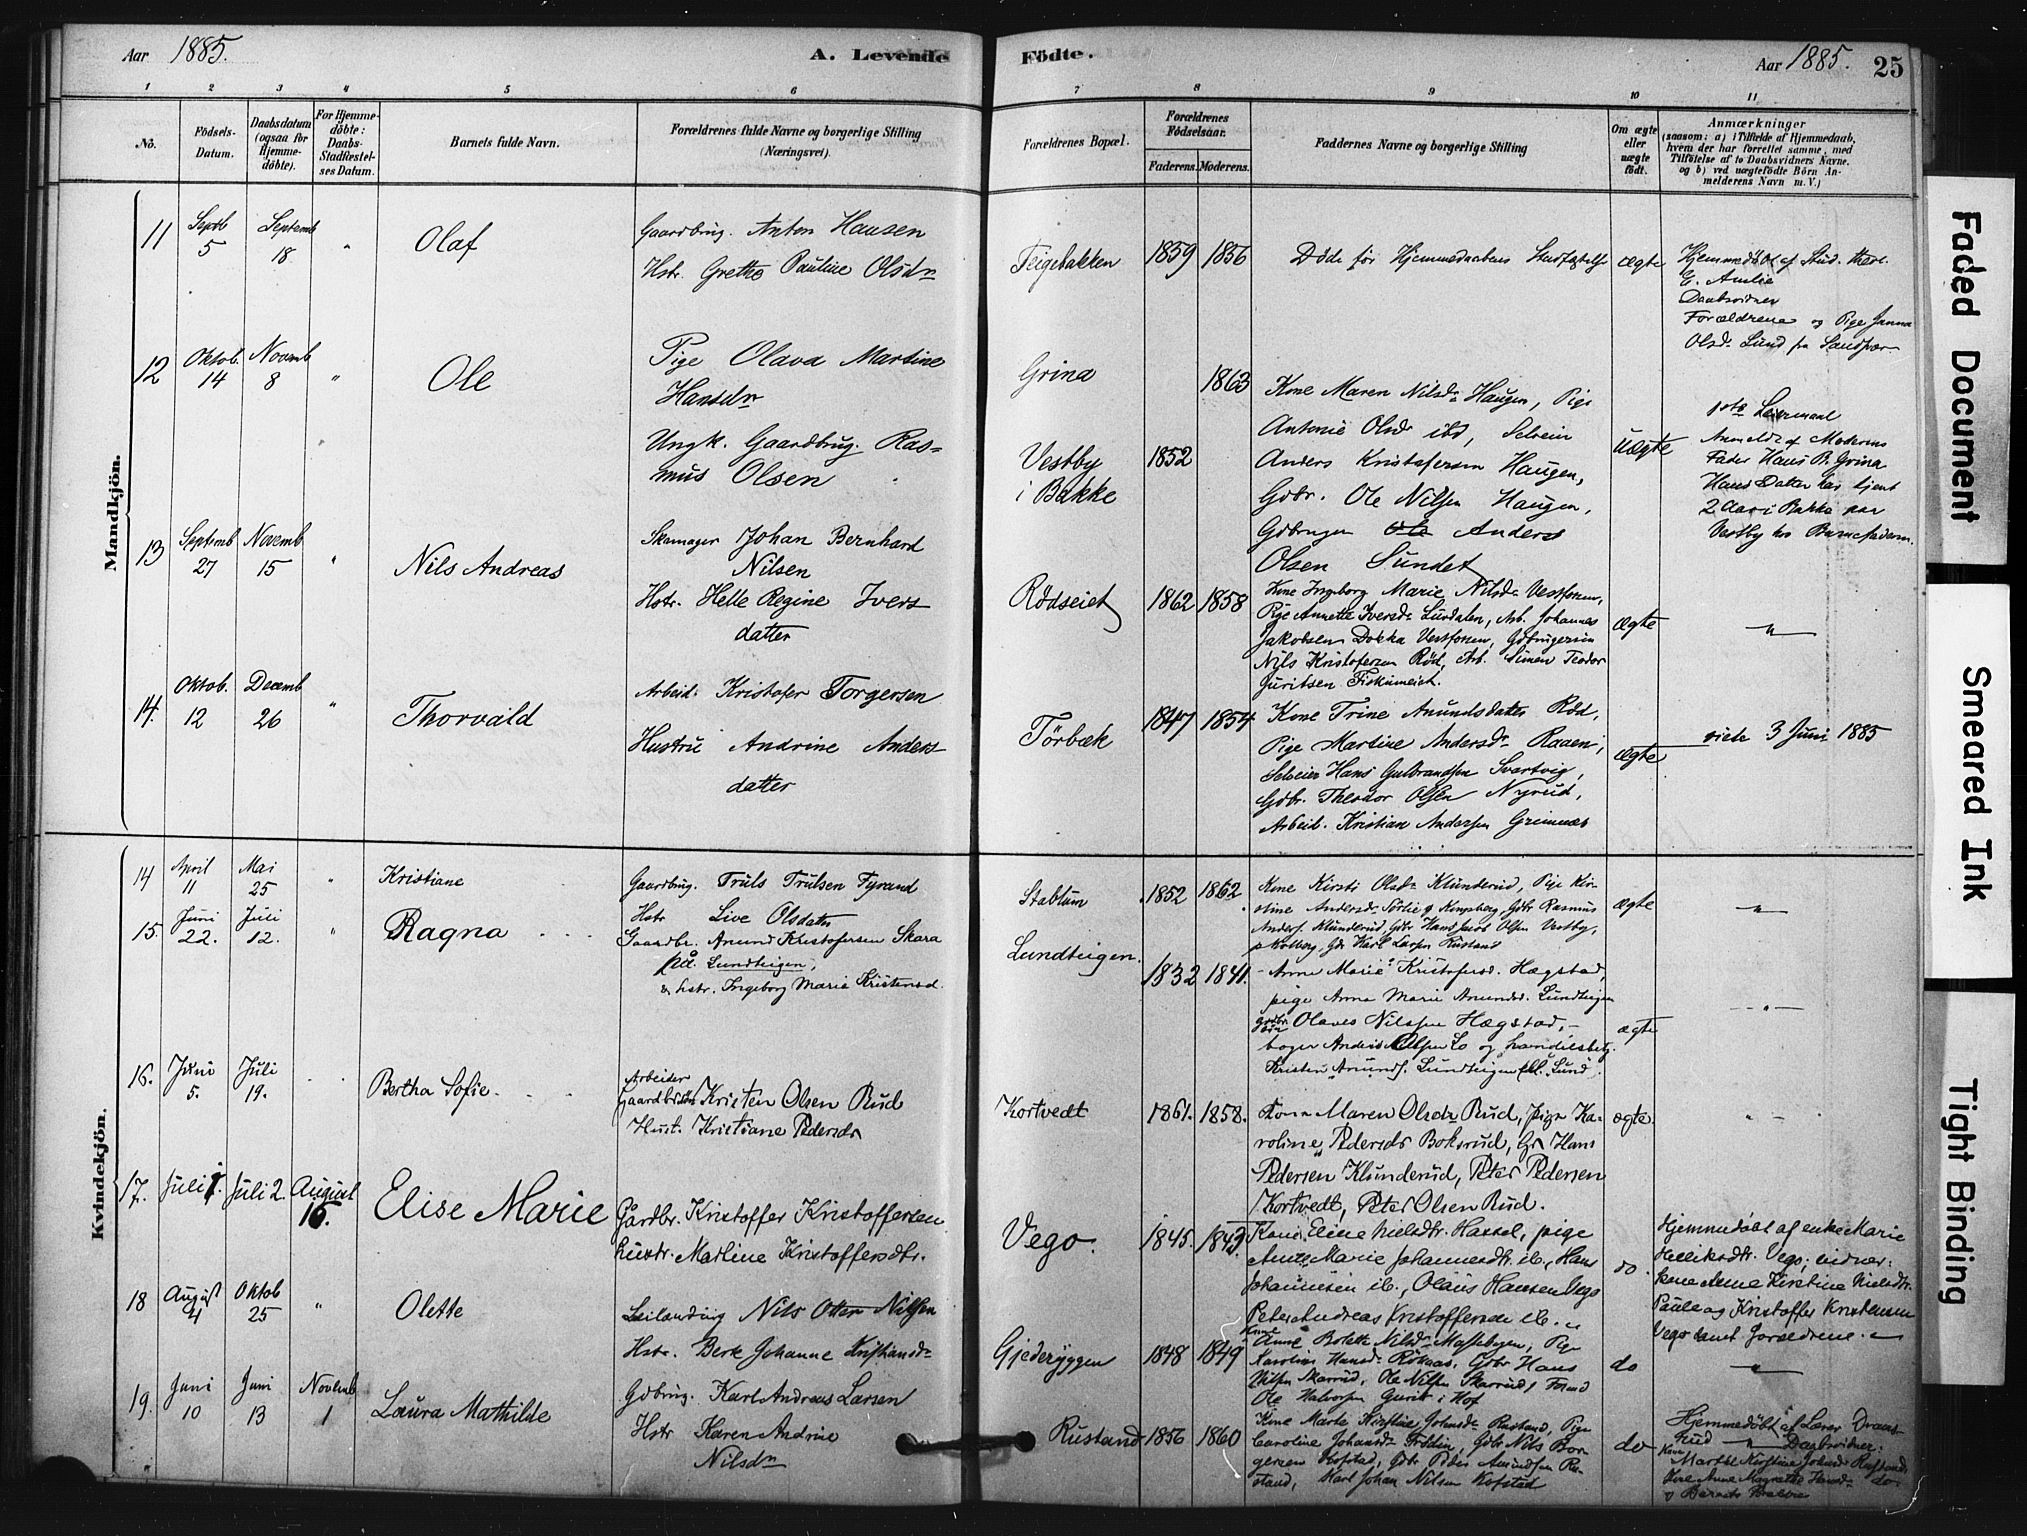 Aar 1885. A. Levende Födte. Aar 1885. 25
1 2 3 4 5 6 7 8 9 10 11
No.
Födsels-Datum.
Daabsdatum (ogsaa for Hjemmedöbte).
For Hjemmedöbte: Daabs-Stadfæstelses Datum.
Barnets fulde Navn.
Forældrenes fulde Navne og borgerlige Stilling (Næringsvei).
Forældrenes Bopæl.
Forældrenes Födselsaar.
Faderens. Moderens.
Faddernes Navne og borgerlige Stilling
Om ægte eller uægte födt.
Anmærkninger
(saasom: a) i Tilfælde af Hjemmedaab,
hvem der har forrettet samme, med
Tilföielse af to Daabsvidners Navne.
og b) ved uægtefödte Börn An-
melderens Navn m. V.)
Mandkjön.
11 Septb 5 Septemb 18 " Olaf
Gaardbrug. Anton Hansen
Hstr. Grethe Pauline Olsdr
Teigebakken 1859 1856
Döde för Hjemmedaabens Stadfæstelse
ægte
Hjemmedöbt af Stud. theol.
E. Amlie
Daabsvidner
Forældrene og Pige Janna
Olsdr Lund fra
12 Oktob. 14 Novemb 8 " Ole
Pige Olava Martine
Hansdr
Ungk. Gaardbrug. Ras-
mus Olsen
Grina 1863
Vestby
i Bakke 1852
Kone Maren Nilsdr Haugen, Pige
Antonie Olsdr ibd, Selveier
Anders Kristofersen Haugen,
Gdbr. Ole Nilsen Haugen,
Gdbruger Anders
Olsen Sundet
Uægte
1ste Leiermaal
Anmeldt af Moderens
Fader Hans B. Grina
Hans Datter har tjent
2 Aar i Bakke paa
Vestby hos Barnefaderen.
13 Septemb 27 Novemb 15 " Nils Andreas
Skomager Johan Bernhard
Nilsen
Hstr. Helle Regine Ivers
datter
Rödseiet 1862 1858
Kone Ingeborg Marie Nilsdr Vestfossen,
Pige Annette Iversdr Lurdalen, Arb. Johannes
Jakobsen Dokka Vestfossen, Gdbrugersön
Nils Kristofersen Röd, Arb. Simen Teodor
Guritsen Fiskumeiet.
ægte "
14. Oktob. 12 Decemb 26 " Thorvald
Arbeid. Kristofer Torgersen
Hustru Andrine Anders
datter
Törbæk 1847 1854
Kone Trine Anundsdatter Röd,
Pige Martine Andersdr Raaen,
Selveier Hans Gulbrandsen Svartvig,
Gdbr. Theodor Olsen Nyrud,
Arbeid. Kristian Andersen Grimnæs
ægte
viede 3 Juni 1885
Kvindekjön.
14 April 11 Mai 25 " Kristiane
Gaardbrug. Truls Trulsen Fyrand
Hstr Live Olsdatter
Stablum 1852 1862
Kone Kirsti Olsdr Klunderud, Pige Kir-
stine Andersdr Sørlie Kongsberg, Gdbr Rasmus
Anders. Klunderud, Gdbr Hans Jacob Olsen Vestby,
Kolberg, Gdr Karl Larsen Rustand
ægte "
15. Juni 22. Juli 12. " Ragna
Gaardbr. Anund Kristofersen Skara
pd. Lundteigen;
& hstr. Ingeborg Marie Kristensd.
Lundteigen. 1832 1841.
Anne Marie Kristofersd. Hægstad,
pige Anna Marie Anundsd. Lundteigen
gdbr. Olaves Nilssen Hægstad,
Anders Olsen Lo og handelsbetj.
Kristen Anunds. Lundteigen Lund.
ægte "
16. Juni 5. Juli 19. Bertha Sofie.
Arbeider
Kristen Olsen Rud
Hust. Kristiane Pedersdr
Kortvedt 1861. 1858.
Kone Maren Olsdr Rud, pige Ka-
roline Pedersdr Boksrud, Gr Hans
Pedersen Klunderud, Peter Pedersen
Kortvedt, Peter Olsen Rud.
ægte. "
17. Juli 1. Juli 2. August 16. Elise Marie
Gårdbr. Kristoffer Kristoffersen
hustr. Martine Kristoffersdtr.
Vego. 1845. 1843.
Kone Eline Nielsdtr. Hassel, pige
Anne Marie Johannesdtr. ib., Hans
Johannesen ib., Olaus Hansen Vego
Peter Andreas Kristoffersen ib.
do.
Hjemmedöbt af enke Marie
Helliksdtr. Vego; vidner:
kone Anne Kirstine Nielsdtr.
Paule og Kristoffer Kristensen
Vego samt forældrene.
18 August 4 Oktob 25 " Olette
Leilænding Nils Otter Nilsen
Hstr. Berte Johanne Kristiansdr
Gjederyggen 1848 1849
Kone
Anne Bolette Nilsdr Pige
Karoline Hansdr Rökaas, Gdbr Hans
Nilsen Skarrud, Ole Nilsen Skarrud,
Ole Halvorsen i Hof
do "
19. Juni 10 Juni 13 Novemb 1 Laura Mathilde
Gdbrug. Karl Andreas Larsen
Hstr Karen Andrine
Nilsdr
Rustand 1856 1860
Kone Marte Kirstine Johnsdr Rustand, Pige
Caroline Johansdr Gdbr Nils Bor-
gersen Hofstad, Gdbr Peder Amundsen Ru-
stand, Karl Johan Nilsen Hofstad
do
Hjemmedöbt af Lærer Draas-
hud Daabsvidner:
Kone
Marthe Kirstine Johnsdr Rustand
Kone Anne Magrethe Hansdr do.
Faded Document
Smeared Ink
Tight Binding